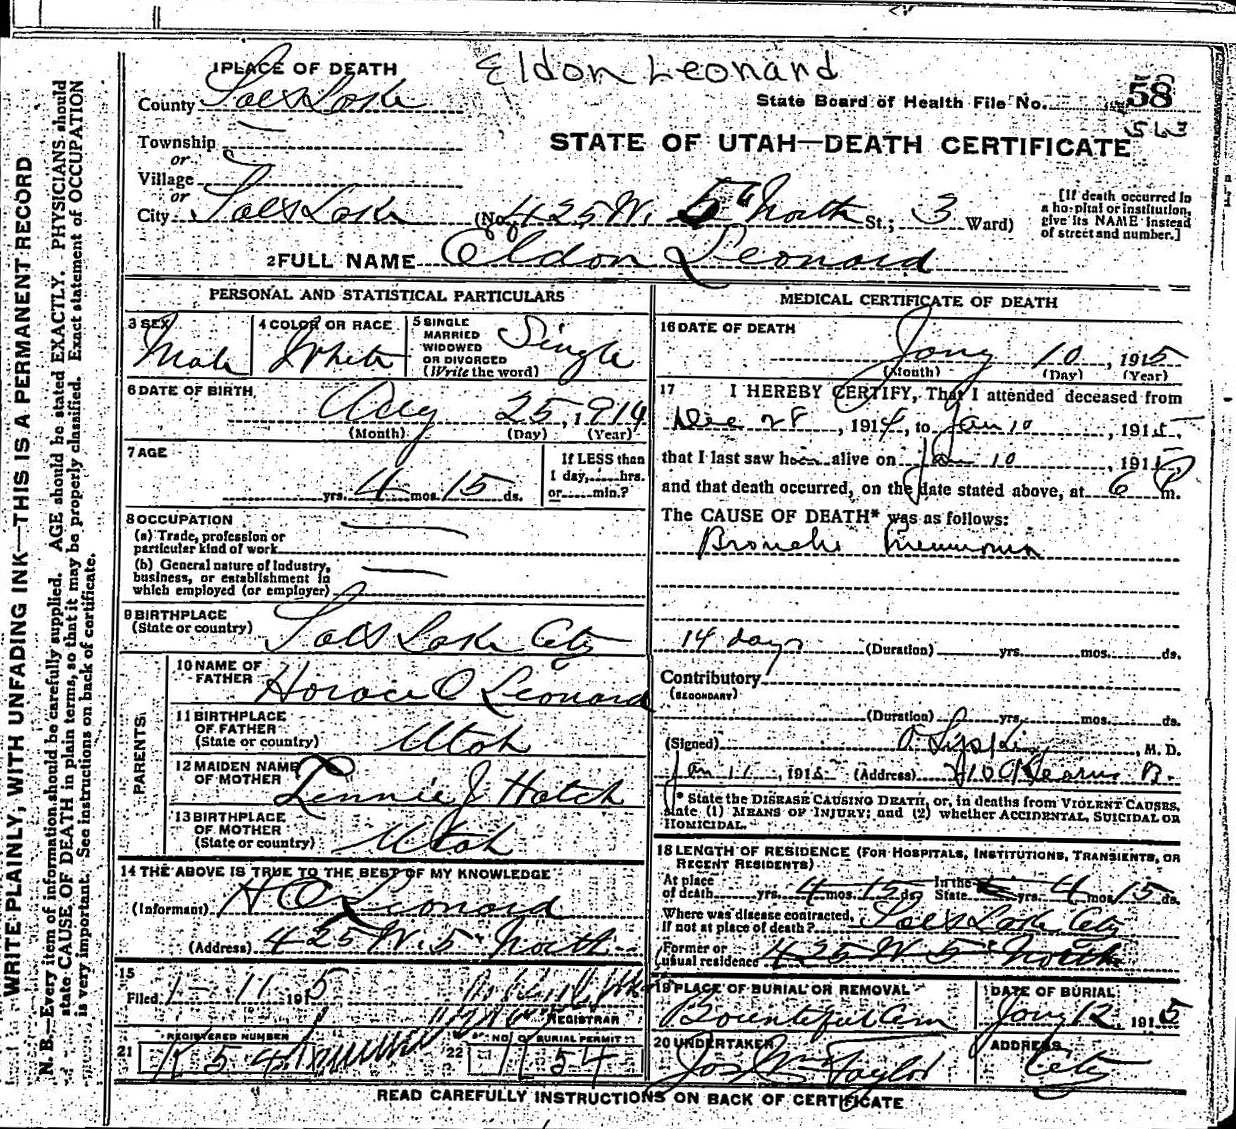 Eldon Leonard
1 PLACE OF DEATH
County Salt Lake
State Board of Health File No. 58
563
STATE OF UTAH—DEATH CERTIFICATE
Township
or
Village
or
City Salt Lake (No. 425 W. 5" North St.; 3 Ward)
[If death occurred in a hospital or institution, give its NAME instead of street and number.]
2 FULL NAME Eldon Leonard
PERSONAL AND STATISTICAL PARTICULARS
3 SEX Male
4 COLOR OR RACE White
5 SINGLE MARRIED WIDOWED OR DIVORCED (Write the word) Single
6 DATE OF BIRTH Aug 25, 1914
(Month) (Day) (Year)
7 AGE
yrs. 4 mos. 15 ds.
If LESS than 1 day, hrs. or min.?
8 OCCUPATION
(a) Trade, profession or particular kind of work
(b) General nature of industry, business, or establishment in which employed (or employer)
9 BIRTHPLACE (State or country) Salt Lake City
PARENTS
10 NAME OF FATHER Horace O Leonard
11 BIRTHPLACE OF FATHER (State or country) Utah
12 MAIDEN NAME OF MOTHER Lennie J Hatch
13 BIRTHPLACE OF MOTHER (State or country) Utah
14 THE ABOVE IS TRUE TO THE BEST OF MY KNOWLEDGE
(Informant) H O Leonard
(Address) 425 W. 5" North
15
Filed 1-11 1915
REGISTRAR
REGISTERED NUMBER
21 K 54
22 NO. OF BURIAL PERMIT 54
MEDICAL CERTIFICATE OF DEATH
16 DATE OF DEATH
Jany 10, 1915
(Month) (Day) (Year)
17 I HEREBY CERTIFY, That I attended deceased from
Dec 28, 1914, to Jan 10, 1915,
that I last saw him alive on Jan 10, 1915,
and that death occurred, on the date stated above, at 6 P m.
The CAUSE OF DEATH* was as follows:
Broncho Pneumonia
14 days (Duration) yrs. mos. ds.
Contributory
(SECONDARY)
(Duration) yrs. mos. ds.
(Signed) M. D.
Jan 11, 1915 (Address) Kearns B.
* State the DISEASE CAUSING DEATH, or, in deaths from VIOLENT CAUSES, state (1) MEANS OF INJURY; and (2) whether ACCIDENTAL, SUICIDAL OR HOMICIDAL.
18 LENGTH OF RESIDENCE (FOR HOSPITALS, INSTITUTIONS, TRANSIENTS, OR RECENT RESIDENTS)
At place of death yrs. 4 mos. 15 ds. In the State yrs. 4 mos. 15 ds.
Where was disease contracted, If not at place of death? Salt Lake City
Former or usual residence 425 W 5" North
19 PLACE OF BURIAL OR REMOVAL Bountiful Cem
DATE OF BURIAL Jany 12, 1915
20 UNDERTAKER Jos Wm Taylor
ADDRESS City
READ CAREFULLY INSTRUCTIONS ON BACK OF CERTIFICATE
WRITE PLAINLY, WITH UNFADING INK—THIS IS A PERMANENT RECORD
N. B.—Every item of information should be carefully supplied. AGE should be stated EXACTLY. PHYSICIANS should
state CAUSE OF DEATH in plain terms, so that it may be properly classified. Exact statement of OCCUPATION
is very important. See instructions on back of certificate.